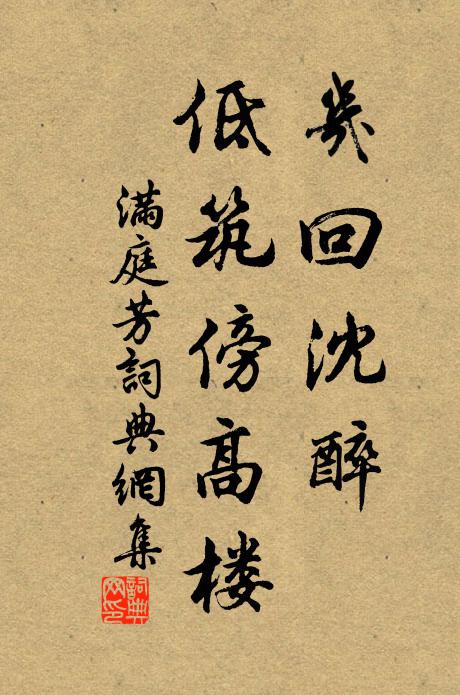 幾回沈醉
低筑傍高楼
滿庭芳詞典網集
詞典網印